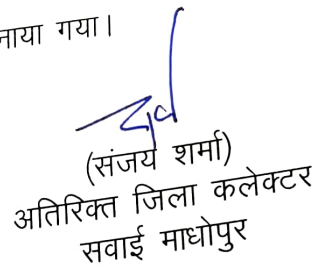 गया।
(संजय शर्मा)
अतिरिक्त जिला कलेक्टर
सवाई माधोपुर